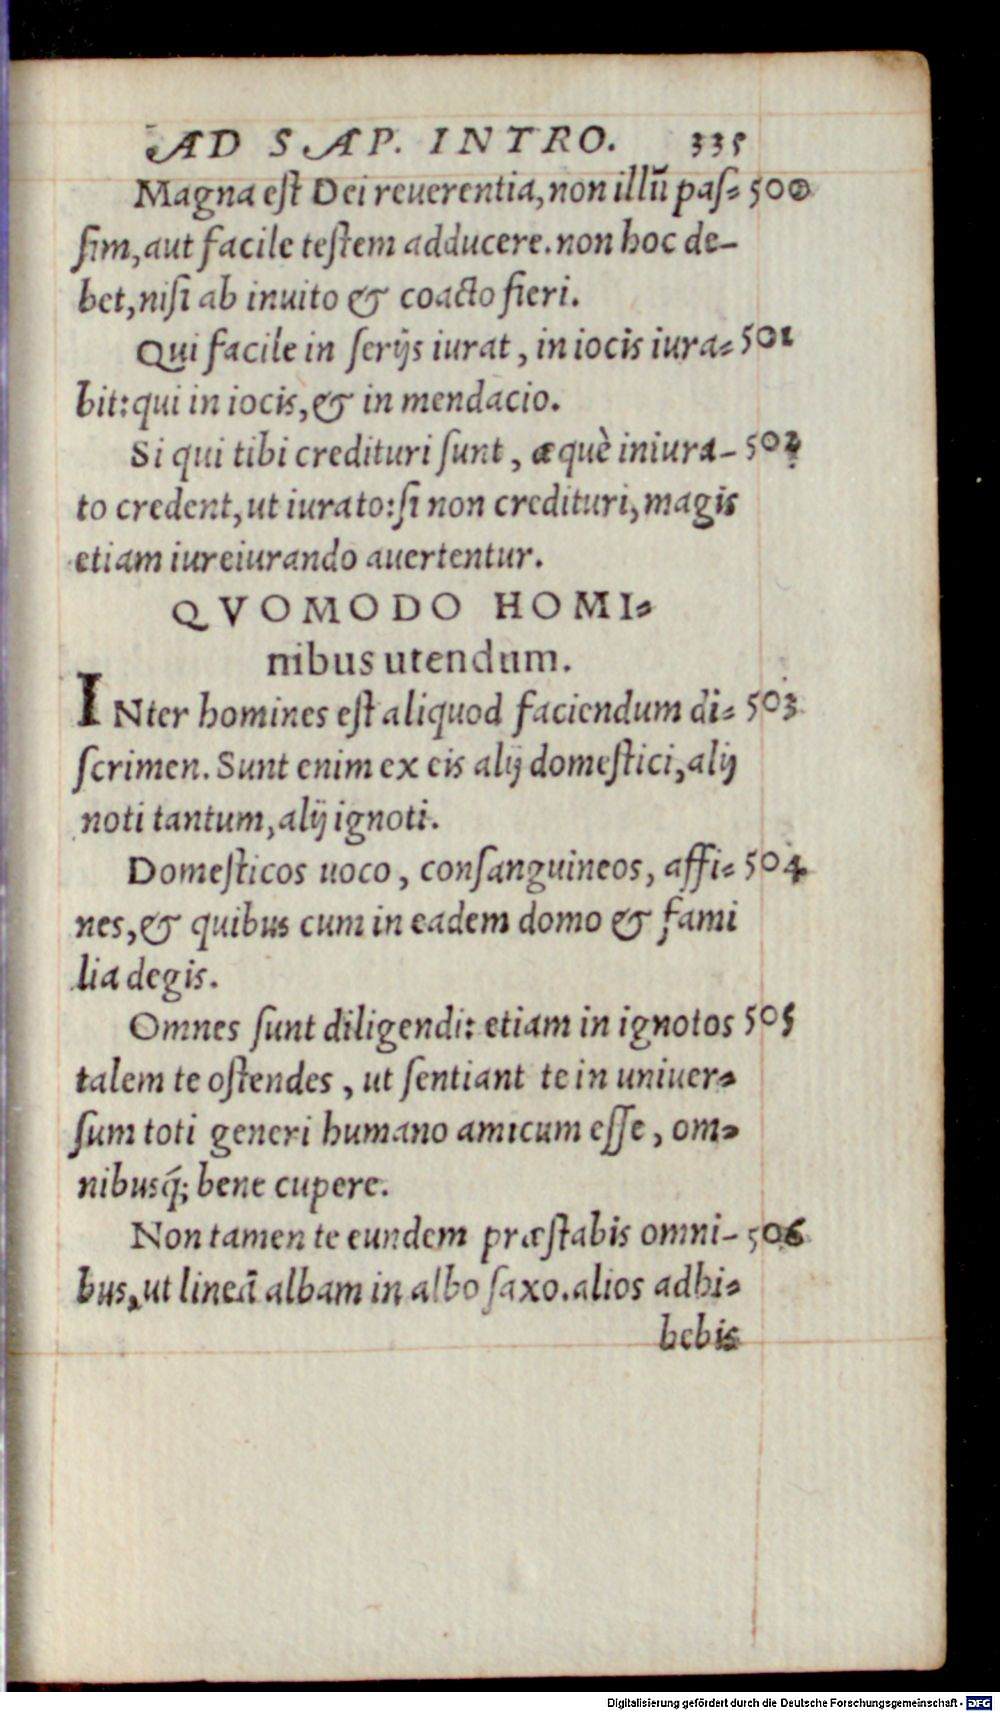 AD SAP. INTRO. 335
Magna est Dei reuerentia, non illũ pas= 500
sim, aut facile testem adducere. non hoc de-
bet, nisi ab inuito & coacto fieri.
Qui facile in serijs iurat, in iocis iura= 501
bit: qui in iocis, & in mendacio.
Si qui tibi credituri sunt, æquè iniura- 502
to credent, ut iurato: si non credituri, magis
etiam iureiurando auertentur.
QVOMODO HOMI=
nibus utendum.
INter homines est aliquod faciendum di= 503
scrimen. Sunt enim ex eis alij domestici, alij
noti tantum, alij ignoti.
Domesticos uoco, consanguineos, affi= 504
nes, & quibus cum in eadem domo & fami
lia degis.
Omnes sunt diligendi: etiam in ignotos 505
talem te ostendes, ut sentiant te in uniuer=
sum toti generi humano amicum esse, om=
nibusq́; bene cupere.
Non tamen te eundem præstabis omni- 506
bus, ut lineã albam in albo saxo. alios adhi=
bebis
Digitalisierung gefördert durch die Deutsche Forschungsgemeinschaft - DFG